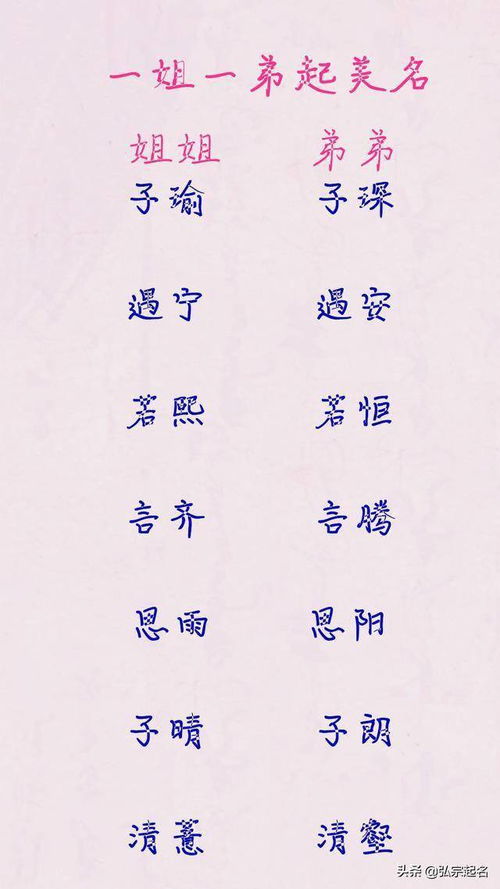 一姐一弟起美名
姐姐 弟弟
子瑜 子琛
遇宁 遇安
若熙 若恒
言齐 言腾
恩雨 恩阳
子晴 子朗
清薏 清壑
头条@弘宗起名